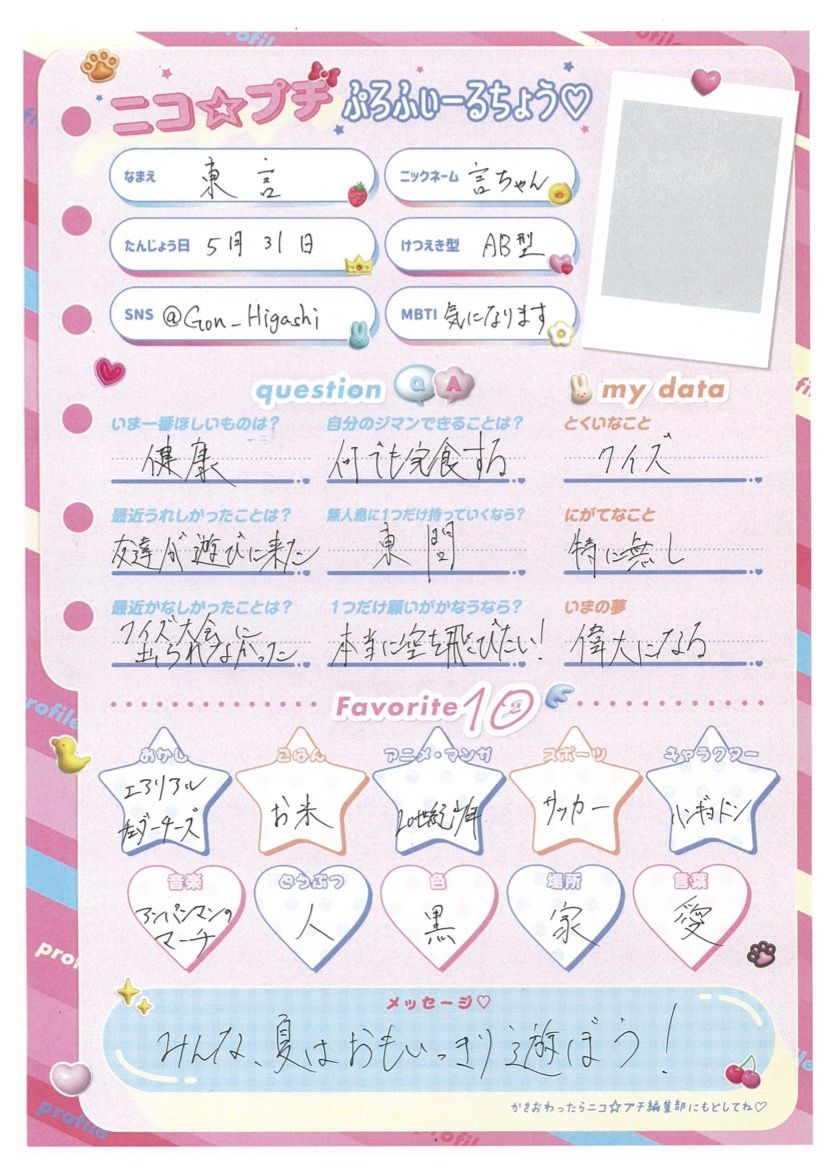 ニコ☆プチ ぷろふぃーるちょう♡
なまえ 東言
ニックネーム 言ちゃん
たんじょう日 5月31日
けつえき型 AB型
SNS @Gon_Higashi
MBTI 気になります
question Q A
my data
いま一番ほしいものは?
健康
自分のジマンできることは?
何でも完食する
とくいなこと
クイズ
最近うれしかったことは?
友達が遊びに来た
無人島に1つだけ持っていくなら?
東問
にがてなこと
特に無し
最近かなしかったことは?
クイズ大会に
出られなかった
1つだけ願いがかなうなら?
本当に空も飛びたい!
いまの夢
偉大になる
Favorite10
おかし
エアリアル
チェダーチーズ
ごはん
お米
アニメ・マンガ
20世紀少年
スポーツ
サッカー
キャラクター
ハンギョドン
音楽
アンパンマンの
マーチ
どうぶつ
人
色
黒
場所
家
言葉
愛
メッセージ♡
みんな、夏はおもいっきり遊ぼう!
かきおわったらニコ☆プチ編集部にもどしてね♡
profile
profile
profile
profile